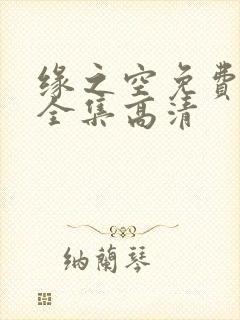 缘之空免费
全集高清
纳蘭琴